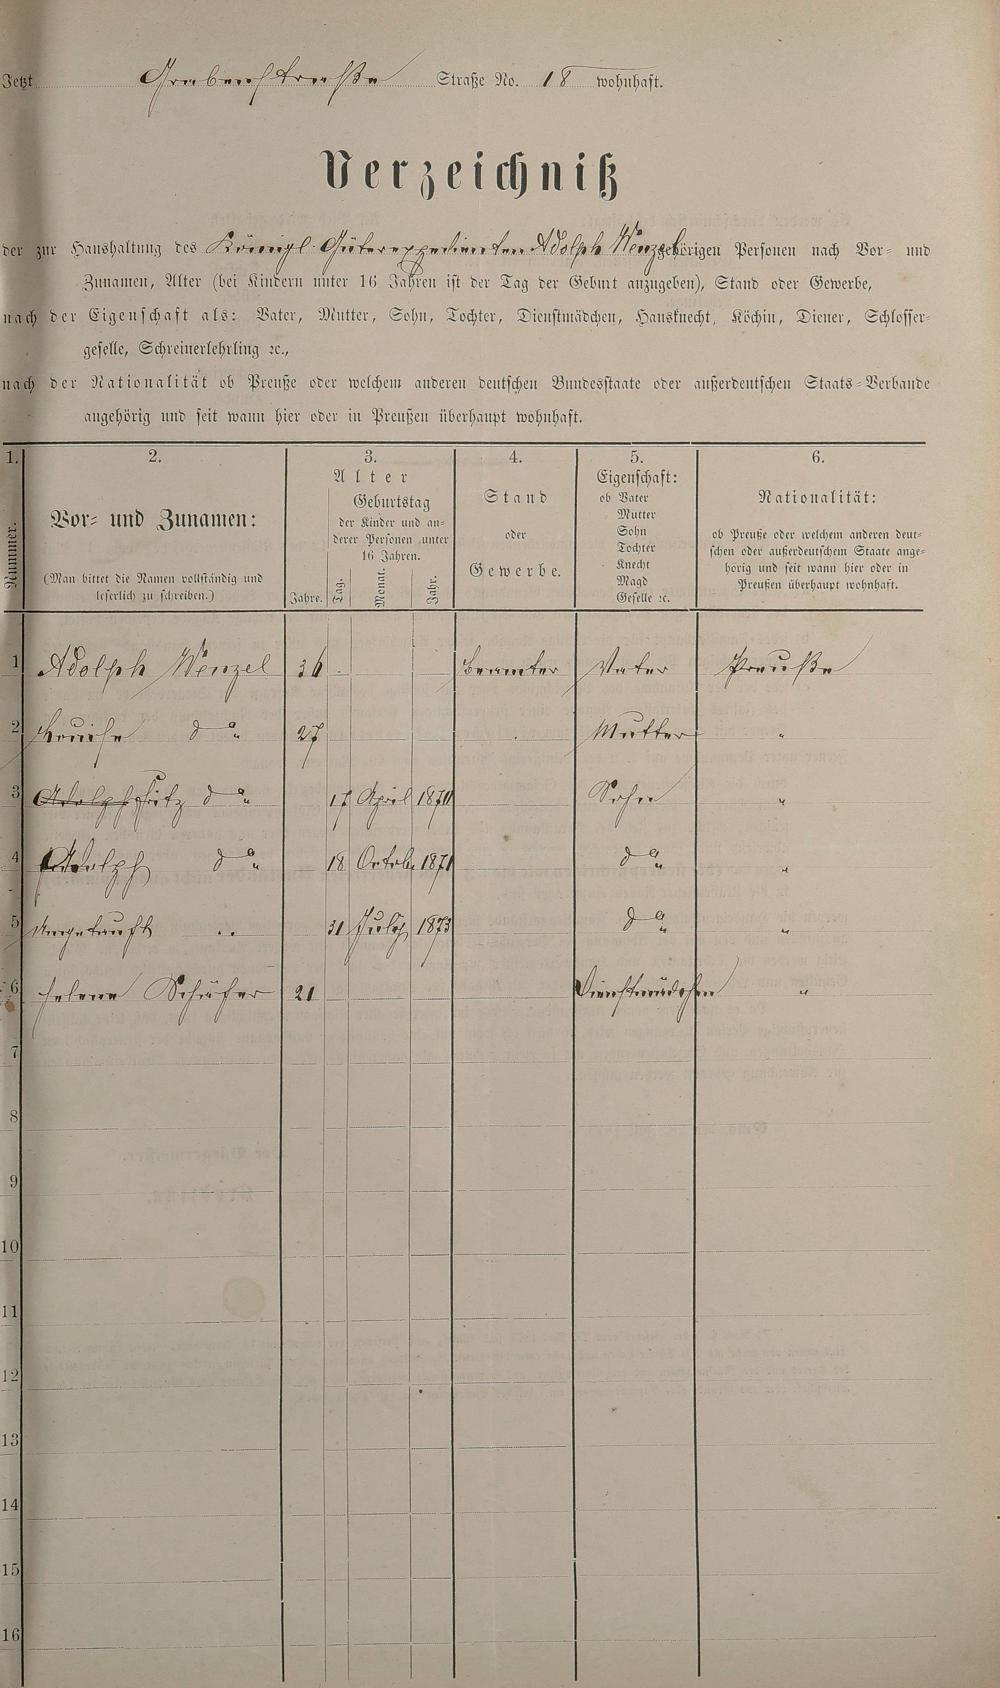 Jetzt Grabenstraße Straße No. 18 wohnhaft.
Verzeichniß
der zur Haushaltung des Königl. Güterexpedienten Adolph Wenzel gehörigen Personen nach Vor- und
Zunamen, Alter (bei Kindern unter 16 Jahren ist der Tag der Geburt anzugeben), Stand oder Gewerbe,
nach der Eigenschaft als: Vater, Mutter, Sohn, Tochter, Dienstmädchen, Hausknecht, Köchin, Diener, Schlosser-
geselle, Schreinerlehrling ꝛc.,
nach der Nationalität ob Preuße oder welchem anderen deutschen Bundesstaate oder außerdeutschen Staats-Verbande
angehörig und seit wann hier oder in Preußen überhaupt wohnhaft.
1. 2. 3. 4. 5. 6.
Nummer.
Vor- und Zunamen:
(Man bittet die Namen vollständig und
leserlich zu schreiben.)
Alter
Jahre.
Geburtstag
der Kinder und an-
derer Personen unter
16 Jahren.
Tag. Monat. Jahr.
Stand
oder
Gewerbe.
Eigenschaft:
ob Vater
Mutter
Sohn
Tochter
Knecht
Magd
Geselle ꝛc.
Nationalität:
ob Preuße oder welchem anderen deut-
schen oder außerdeutschem Staate ange-
hörig und seit wann hier oder in
Preußen überhaupt wohnhaft.
1 Adolph Wenzel 36 Beamter Vater Preuße
2 Louise do " 27 Mutter "
3 Adolph Fritz do " 17 April 1870 Sohn "
4 Adolph do " 18 Octob. 1871 do " "
5 Ungetauft " 31 July 1873 do " "
6 Helene Schäfer 21 Dienstmädchen "
7
8
9
10
11
12
13
14
15
16